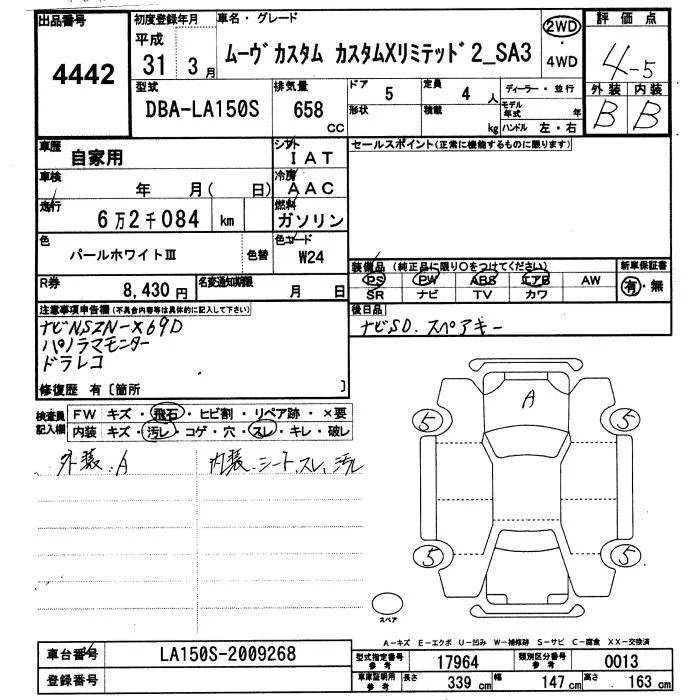 出品番号 初度登録年月 車名・グレード 2WD 評価点
4442 平成 31 3月 ムーヴカスタム カスタムXリミテッド2_SA3 4WD 4-5
型式 排気量 ドア 5 定員 4人 ディーラー・並行 外装 内装
DBA-LA150S 658 cc 形状 積載 kg モデル年式 年 B B
ハンドル 左・右
車歴 自家用 シフト IAT セールスポイント(正常に機能するものに限ります)
車検 年 月( 日) 冷房 AAC
走行 6万2千084 km 燃料 ガソリン
色 パールホワイトⅢ 色替 色コード W24 装備品 (純正品に限り○をつけてください) 新車保証書
PS PW ABS エアB AW 有・無
R券 8,430円 名変通知期限 月 日 SR ナビ TV カワ
注意事項申告欄(不具合内容等は具体的に記入して下さい) 後日品
ナビNSZN-X69D ナビSD、スペアキー
パノラマモニター
ドラレコ
修復歴 有〔箇所 〕
検査員記入欄 FW キズ・飛石・ヒビ割・リペア跡・×要
内装 キズ・汚レ・コゲ・穴・スレ・キレ・破レ
外装、A 内装、シート、スレ、汚レ
A
5 5
5 5
スペア
A-キズ E-エクボ U-凹み W-補修跡 S-サビ C-腐食 XX-交換済
車台番号 LA150S-2009268 型式指定番号 参考 17964 類別区分番号 参考 0013
登録番号 車庫証明用 参考 長さ 339 cm 幅 147 cm 高さ 163 cm